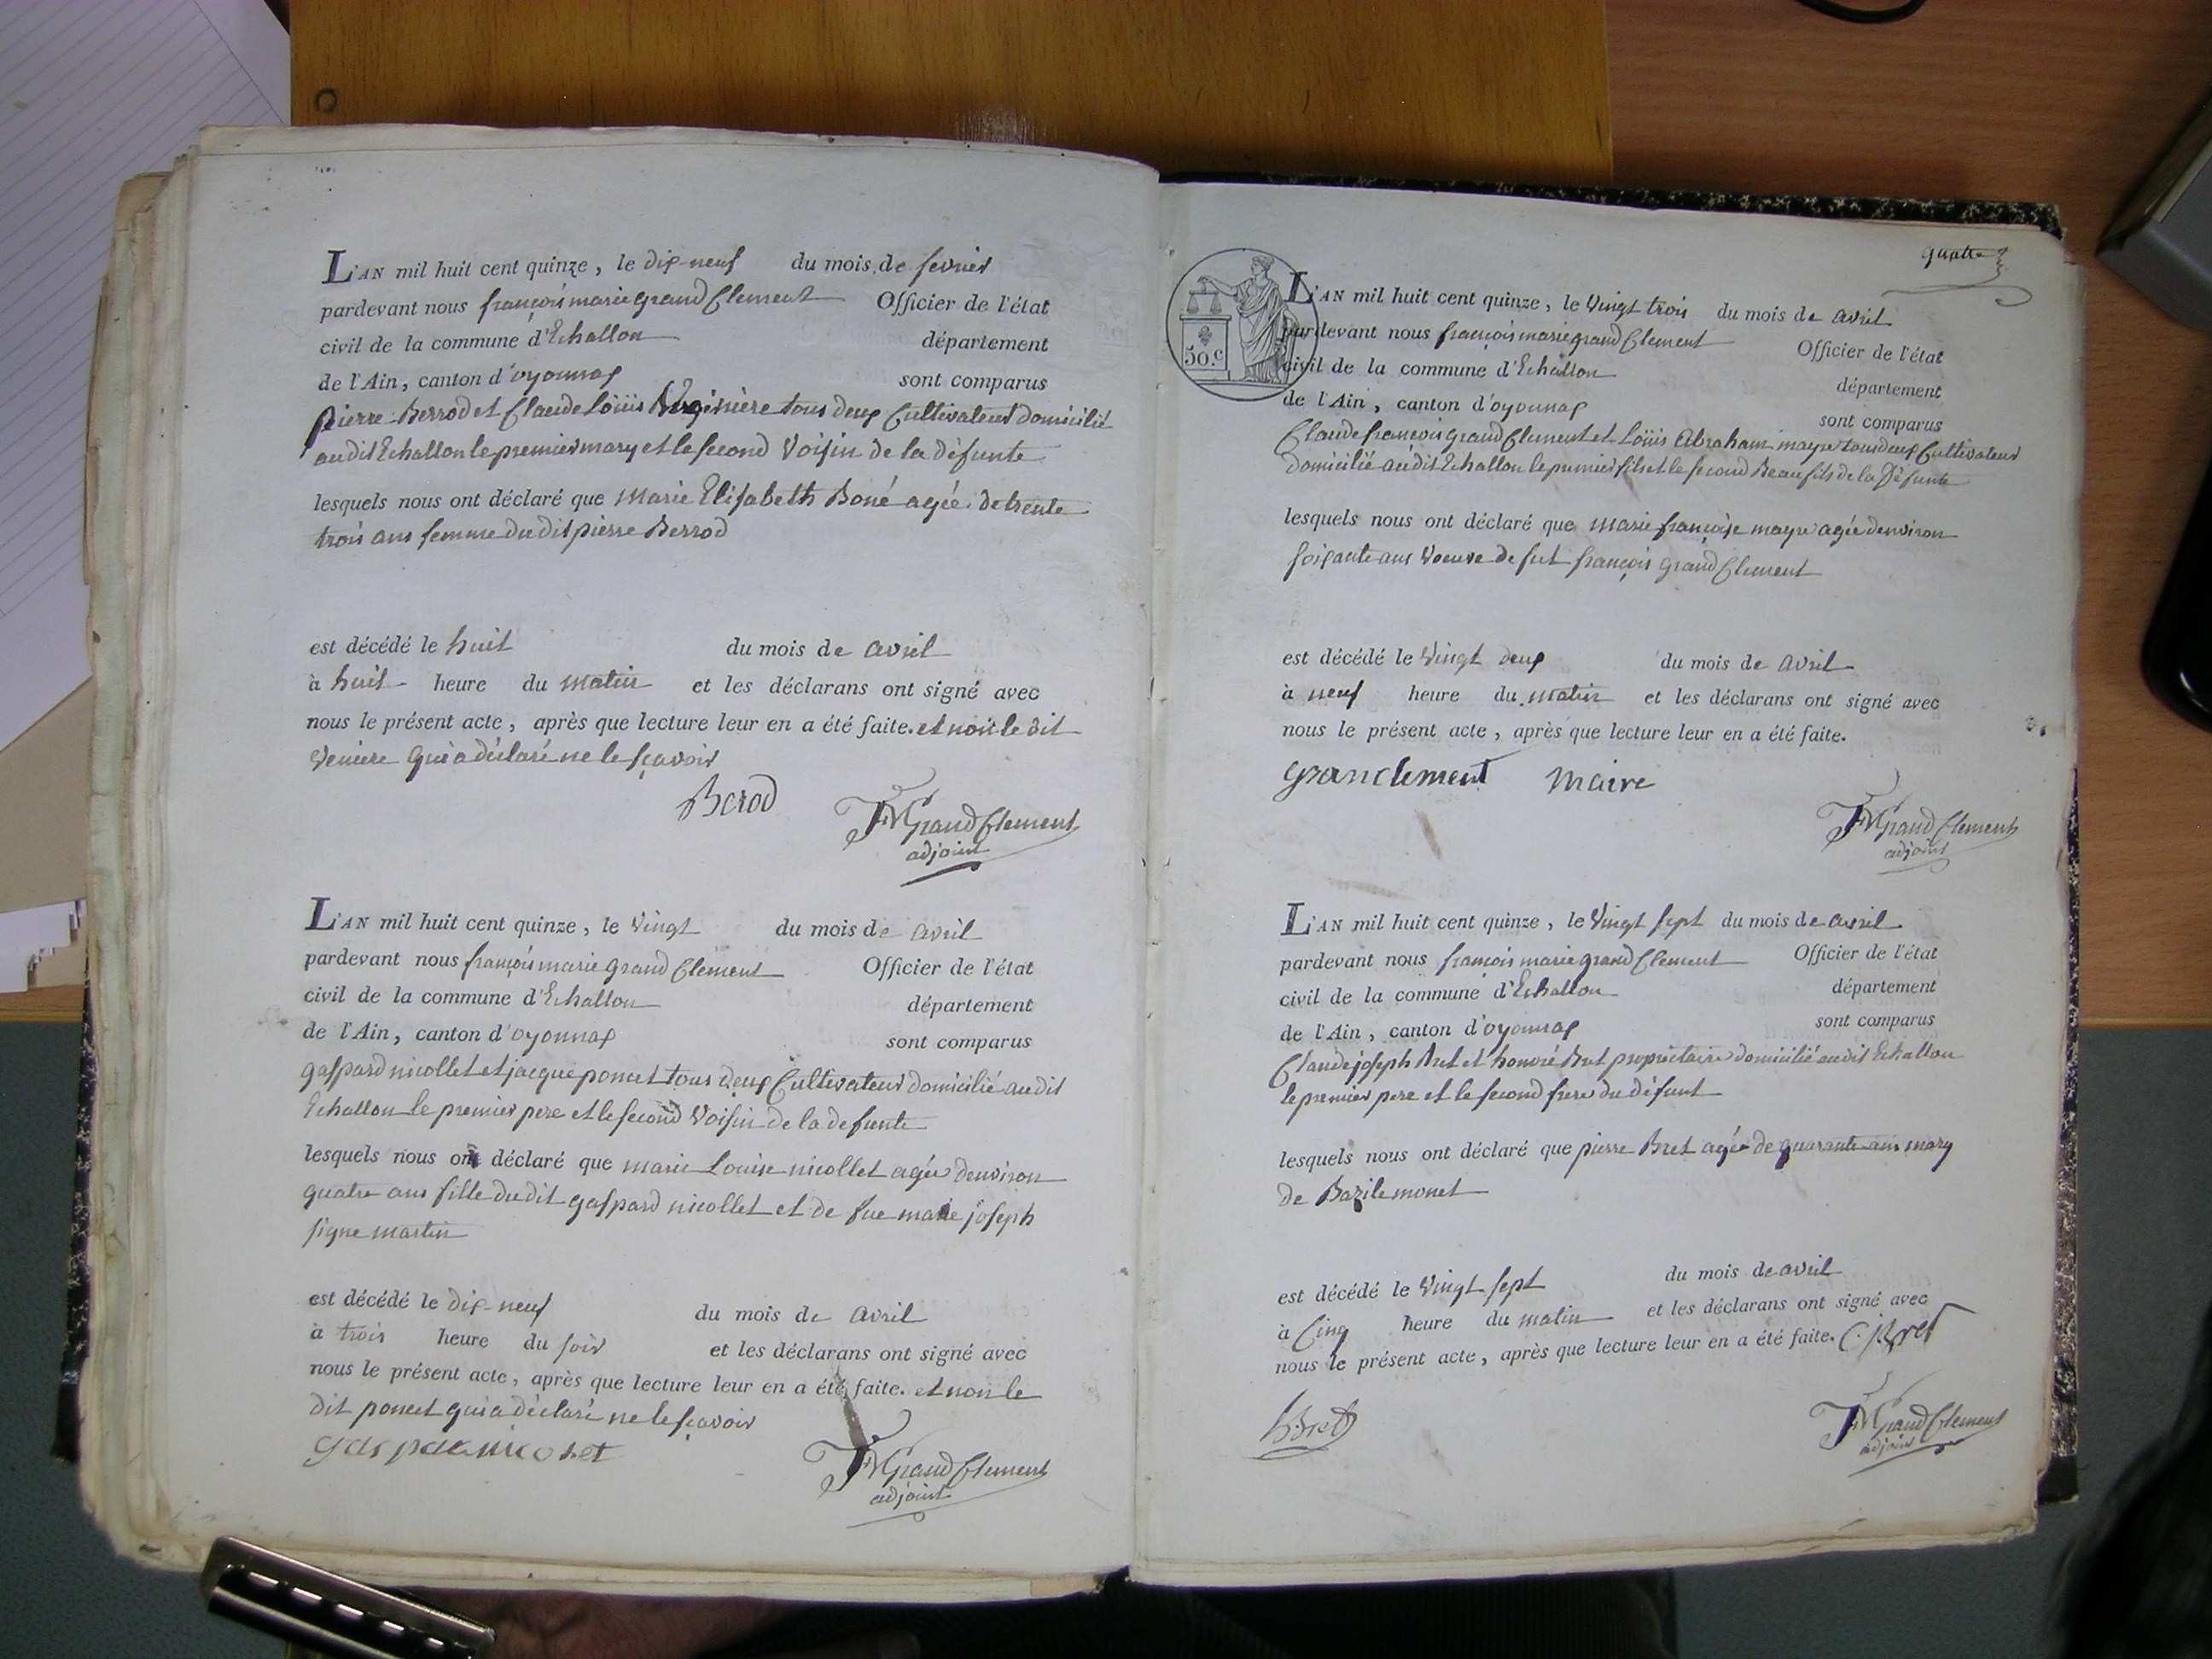 L'AN mil huit cent quinze, le dix-neuf du mois de fevrier
pardevant nous françois marie grand Clement Officier de l'état
civil de la commune d'Echallon département
de l'Ain, canton d'oyonnax sont comparus
pierre Berrod et Claude Loüis tous deux Cultivateur domicilié
audit Echallon le premier mary et le second Voisin de la défunte
lesquels nous ont déclaré que Marie Elisabeth Boné agée de trente
trois ans femme du dit pierre Berrod
est décédé le huit du mois de avril
à huit heure du matin et les déclarans ont signé avec
nous le présent acte, après que lecture leur en a été faite. et non le dit
Veniere qui a déclaré ne le sçavoir
Berod FMGrand Clement
adjoint
L'AN mil huit cent quinze, le Vingt du mois de avril
pardevant nous françois marie grand Clement Officier de l'état
civil de la commune d'Echallon département
de l'Ain, canton d'oyonnax sont comparus
gaspard nicollet et jacque poncet tous deux Cultivateur domicilié audit
Echallon le premier pere et le second Voisin de la defunte
lesquels nous ont déclaré que marie Louise nicollet agée denviron
quatre ans fille du dit gaspard nicollet et de fue marie joseph
signe martin
est décédé le dix-neuf du mois de avril
à trois heure du soir et les déclarans ont signé avec
nous le présent acte, après que lecture leur en a été faite. et non le
dit poncet qui a déclaré ne le sçavoir
FMGrand Clement
adjoint
quatre
50.c
L'AN mil huit cent quinze, le Vingt trois du mois de avril
pardevant nous françois marie grand Clement Officier de l'état
civil de la commune d'Echallon département
de l'Ain, canton d'oyonnax sont comparus
Claude françois grand Clement et Loüis Abraham mayre tous deux Cultivateur
domicilié audit Echallon le premier fils et le second Beau fils de la Défunte
lesquels nous ont déclaré que marie françoise mayre agée denviron
soixante ans Veuve de fut françois grand Clement
est décédé le Vingt deux du mois de avril
à neuf heure du matin et les déclarans ont signé avec
nous le présent acte, après que lecture leur en a été faite.
granclement maire
FMGrand Clement
adjoint
L'AN mil huit cent quinze, le Vingt sept du mois de avril
pardevant nous françois marie grand Clement Officier de l'état
civil de la commune d'Echallon département
de l'Ain, canton d'oyonnax sont comparus
Claude joseph Bret et honoré Bret propriétaire domicilié audit Echallon
le premier pere et le second frere du défunt
lesquels nous ont déclaré que pierre Bret agée de quarante ans mary
de Bazile monet
est décédé le Vingt sept du mois de avril
à Cinq heure du matin et les déclarans ont signé avec
nous le présent acte, après que lecture leur en a été faite. C. j Bret
h. Bret
FMGrand Clement
adjoint